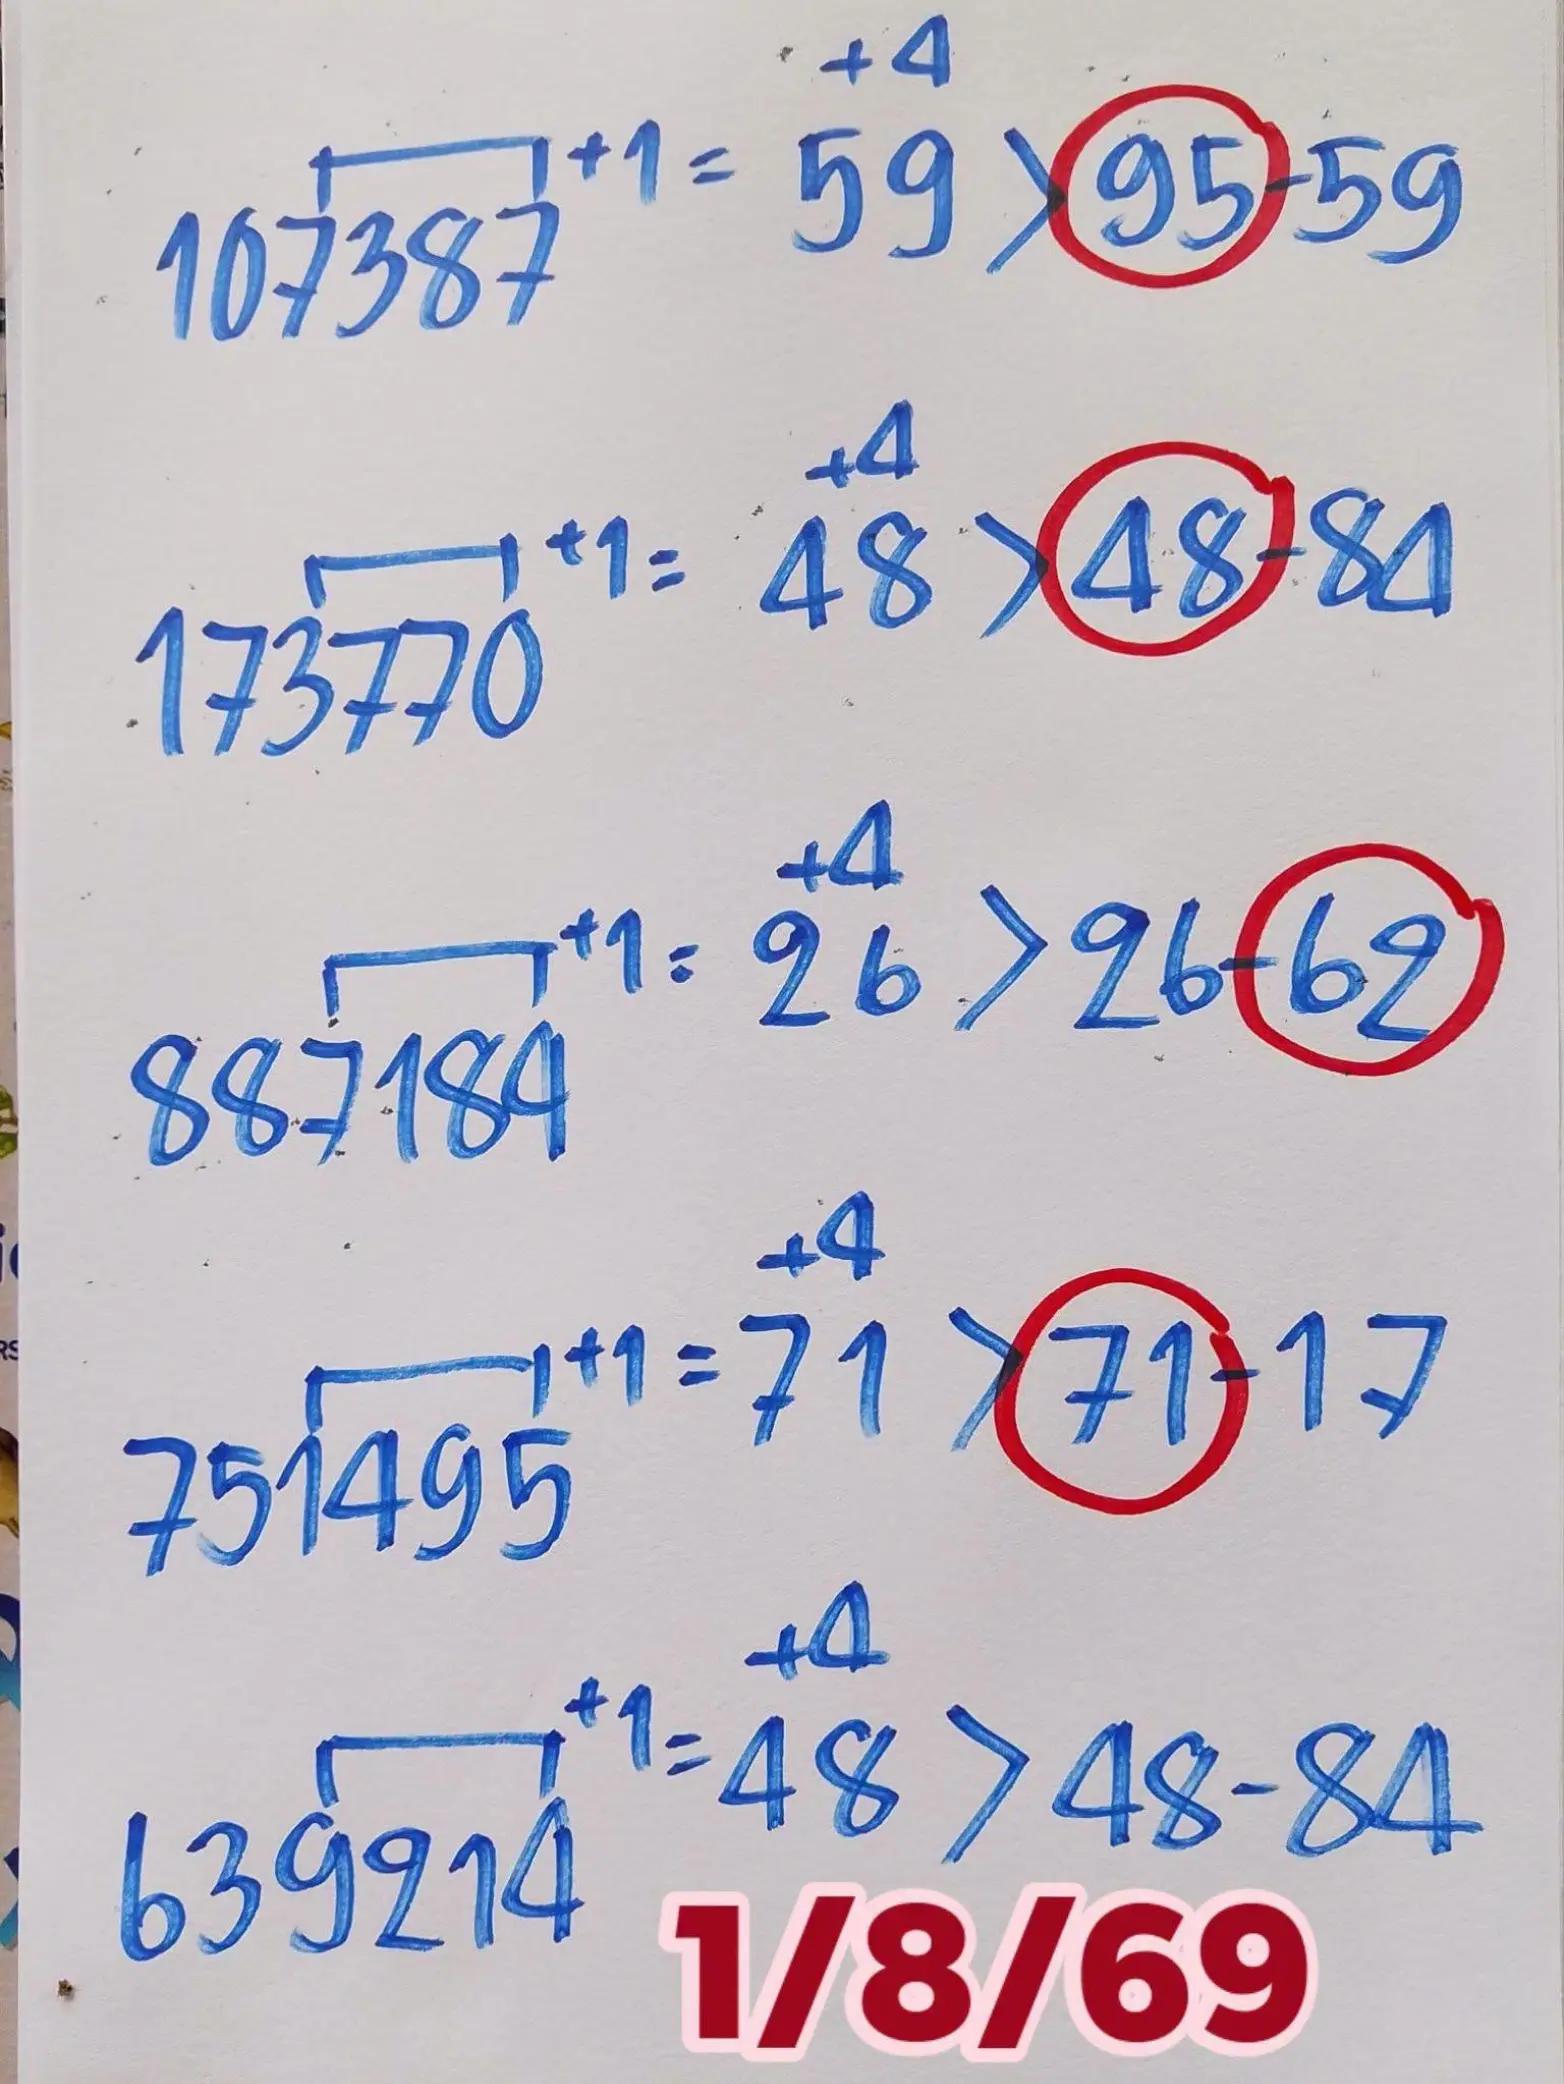 +4
107387 +1 = 59 > 95-59
+4
173770 +1 = 48 > 48-84
+4
887184 +1 = 26 > 26-62
+4
751495 +1 = 71 > 71-17
+4
639214 +1 = 48 > 48-84
1/8/69